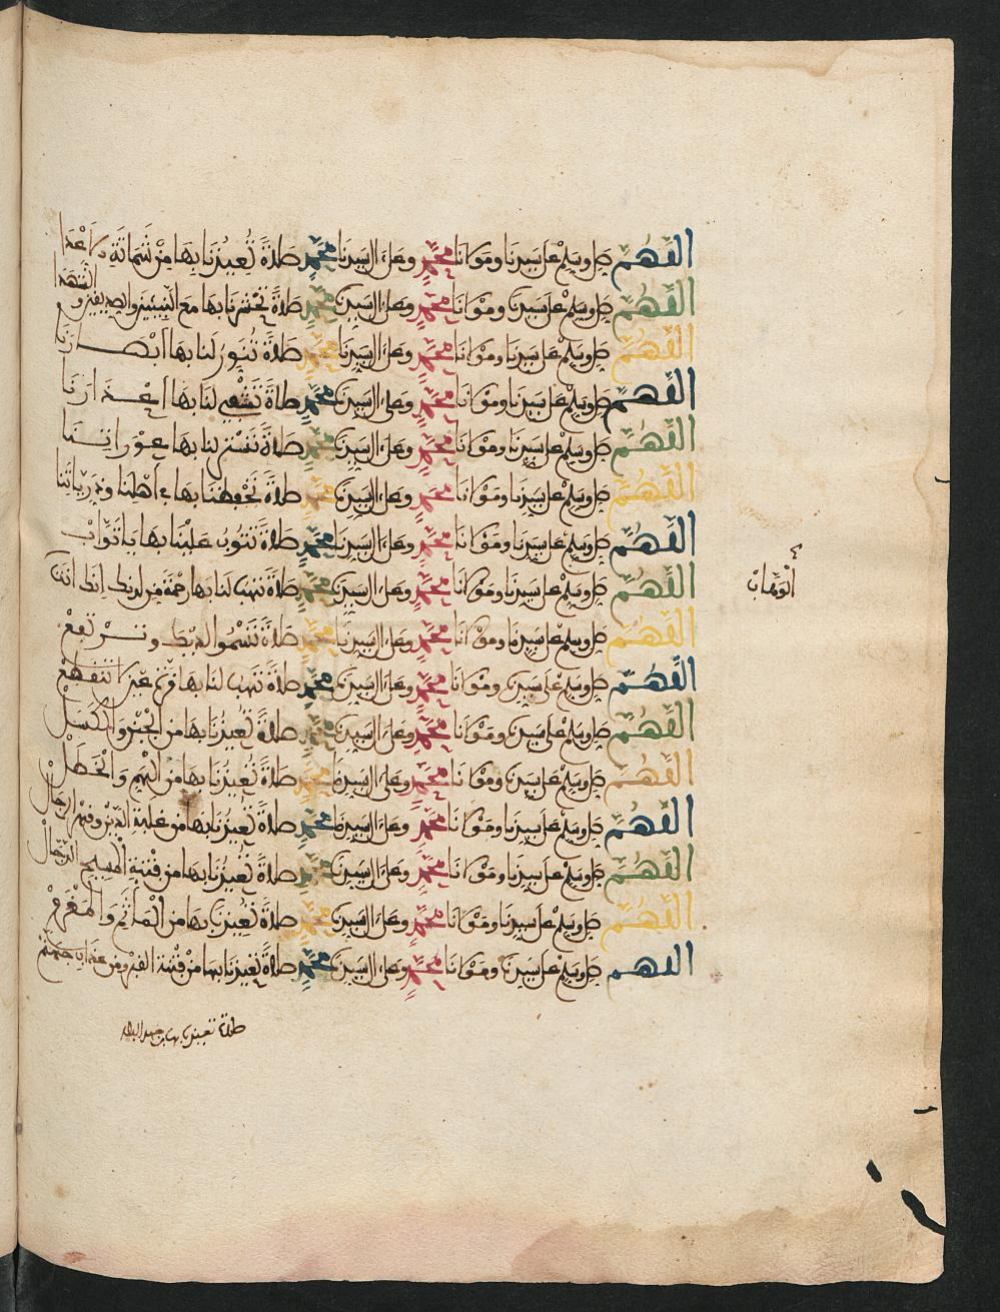 اللهم صل وسلم على سيدنا ومولانا محمد وعلى ءال سيدنا محمد صلاة تعيذنا بها من شماتة الاعدا
اللهم صل وسلم على سيدنا ومولانا محمد وعلى ءال سيدنا محمد صلاة تحشرنا بها مع النبيئين والصديقين والشهدا
اللهم صل وسلم على سيدنا ومولانا محمد وعلى ءال سيدنا محمد صلاة تنور لنا بها ابصارنا
اللهم صل وسلم على سيدنا ومولانا محمد وعلى ءال سيدنا محمد صلاة لنا بها
اللهم صل وسلم على سيدنا ومولانا محمد وعلى ءال سيدنا محمد صلاة تستر لنا بها عوراتنا
اللهم صل وسلم على سيدنا ومولانا محمد وعلى ءال سيدنا محمد صلاة تحفظنا بها في اهلنا وذرياتنا
اللهم صل وسلم على سيدنا ومولانا محمد وعلى ءال سيدنا محمد صلاة تتوب علينا بها يا تواب
اللهم صل وسلم على سيدنا ومولانا محمد وعلى ءال سيدنا محمد صلاة تهب لنا بها رحمة من لدنك انك انت
الوهاب
اللهم صل وسلم على سيدنا ومولانا محمد وعلى ءال سيدنا محمد صلاة تسموا اليك وترتفع
اللهم صل وسلم على سيدنا ومولانا محمد وعلى ءال سيدنا محمد صلاة تهب لنا بها قرة عين لا تنقطع
اللهم صل وسلم على سيدنا ومولانا محمد وعلى ءال سيدنا محمد صلاة تعيذنا بها من الجبن والكسل
اللهم صل وسلم على سيدنا ومولانا محمد وعلى ءال سيدنا محمد صلاة تعيذنا بها من
اللهم صل وسلم على سيدنا ومولانا محمد وعلى ءال سيدنا محمد صلاة تعيذنا بها من غلبة الدين وقهر الرجال
اللهم صل وسلم على سيدنا ومولانا محمد وعلى ءال سيدنا محمد صلاة تعيذنا بها من فتنة المسيح الدجال
اللهم صل وسلم على سيدنا ومولانا محمد وعلى ءال سيدنا محمد صلاة تعيذنا بها من الماثم والمغرم
اللهم صل وسلم على سيدنا ومولانا محمد وعلى ءال سيدنا محمد صلاة تعيذنا بها من فتنة القبر ومن عذاب جهنم
صلاة تعيذنا بها من جهد البلاء